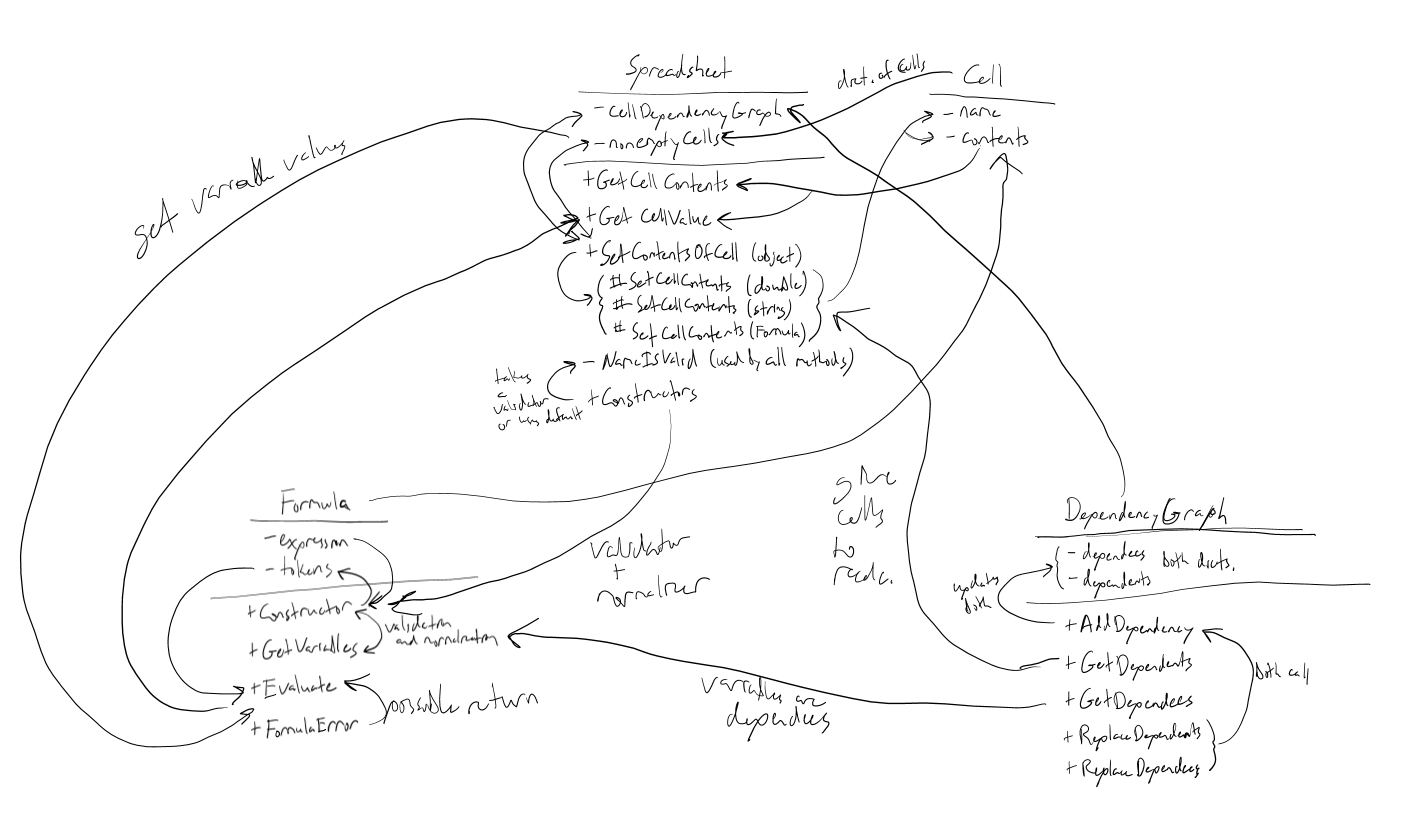 Spreadsheet
- cellDependencyGraph
- nonemptyCells
+ GetCellContents
+ GetCellValue
+ SetContentsOfCell (object)
# SetCellContents (double)
# SetCellContents (string)
# SetCellContents (Formula)
- NameIsValid (used by all methods)
+ Constructors
takes
a
validator
or uses default
dict. of Cells
Cell
- name
- contents
get variable values
Formula
- expression
- tokens
+ Constructor
+ GetVariables
+ Evaluate
+ FormulaError
validation
and normalization
possible return
validator
+
normalizer
give
cells
to
variables are
dependees
DependencyGraph
- dependees
- dependents
both dicts.
updates
both
+ AddDependency
+ GetDependents
+ GetDependees
+ ReplaceDependents
+ ReplaceDependees
both call